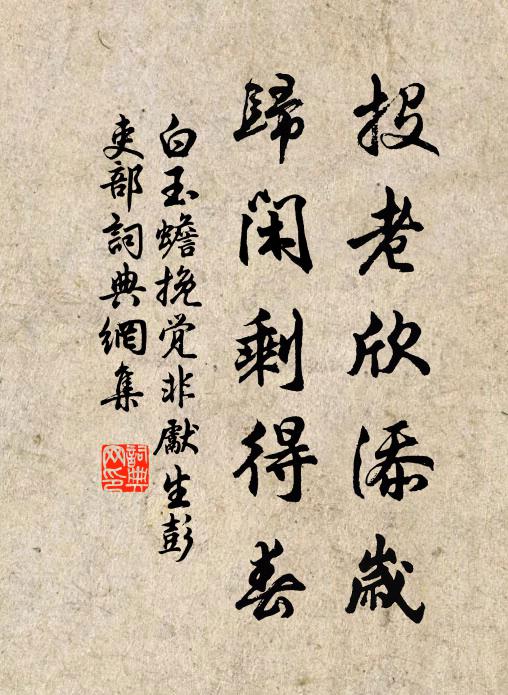 投老欣添歲
歸閑剩得春
白玉蟾挽覺非獻生彭
吏部詞典網集
詞典网印